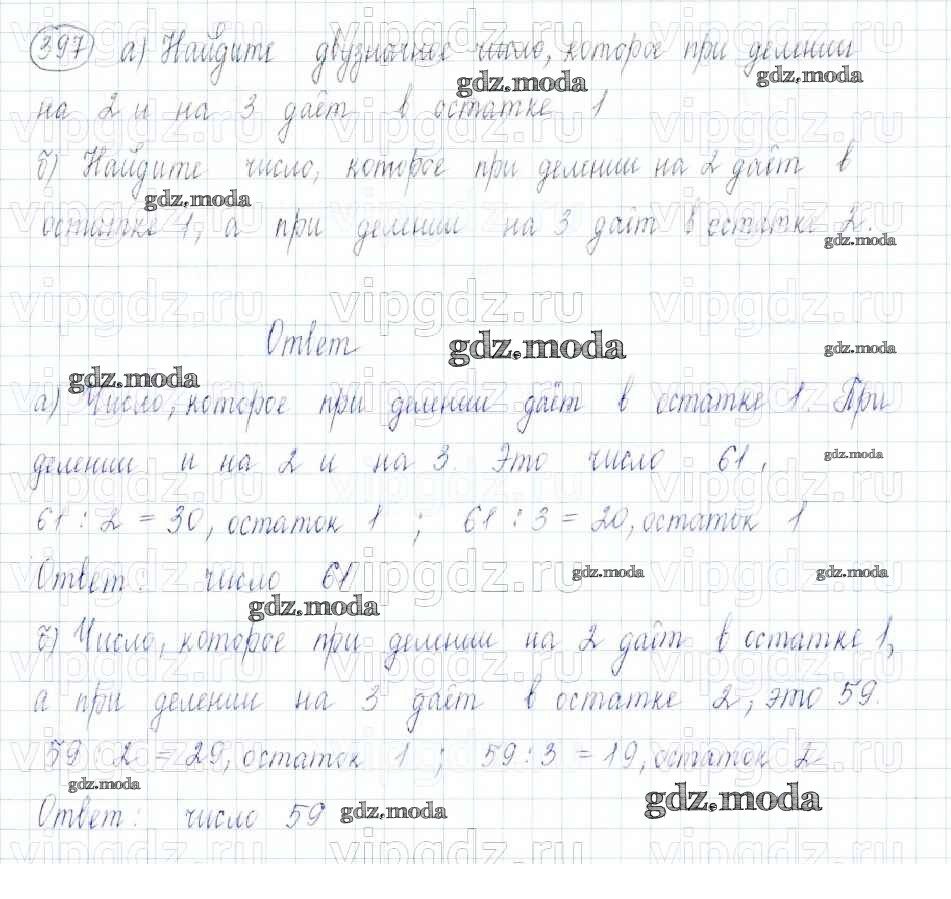 397 а) Найдите двузначное число, которое при делении
на 2 и на 3 даёт в остатке 1
б) Найдите число, которое при делении на 2 даёт в
остатке 1, а при делении на 3 даёт в остатке 2.
Ответ
а) Число, которое при делении даёт в остатке 1. При
делении и на 2 и на 3. Это число 61,
61 : 2 = 30, остаток 1 ; 61 : 3 = 20, остаток 1
Ответ: число 61
б) Число, которое при делении на 2 даёт в остатке 1,
а при делении на 3 даёт в остатке 2, это 59.
59 2 = 29, остаток 1 ; 59 : 3 = 19, остаток 2
Ответ: число 59
gdz.moda
vipgdz.ru